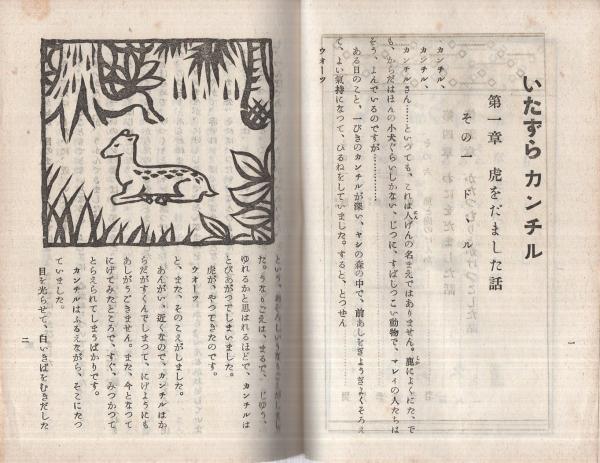 いたずら カンチル
第一章 虎をだました話
その一 ド、ル
カンチル、
カンチル、
カンチルさん……といつても、これは人げんの名まえではありません。鹿によくにた、で
も、からだはほんの小犬ぐらいしかない、じつに、すばしつこい動物で、マレィの人たちは
そう、よんでいるのですが…………
ある日のこと、一ぴきのカンチルが深い、ヤシの森の中で、前あしをぎようぎよくそろえ
て、よい氣持になつて、ひるねをしていました。すると、とつぜん
ウオーツ
一
という、おそろしいうなりごえがしまし
た。うなりごえは、まるで、じゆう、
ゆれるかと思はれるほどで、カンチルは
とびあがつてしまいました。
虎が、やつてきたのです。
ウオーツ
と、また、そのこえがしました。
あんがい、近くなので、カンチルはか
らだがすくんでしまつて、にげようにも
あしがうごきません。また、今となつて
にげてみたところで、すぐ、みつかつて
とらえられてしまうばかりです。
カンチルはふるえながら、そこにたつ
ていました。
目を光らせて、白いきばをむきだした
二